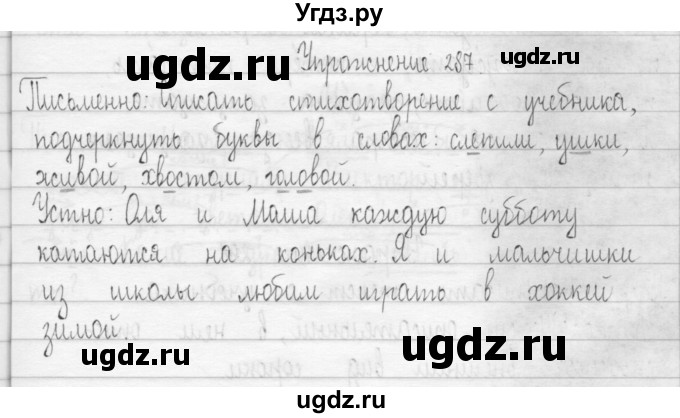 Угдз.ру
ugdz.ru
ugdz.ru
Упражнение 287.
Письменно: Списать стихотворение с учебника,
подчеркнуть буквы в словах: слепили, ушки,
живой, хвостом, головой.
ugdz.ru
Устно: Оля и Маша каждую субботу
катаются на коньках. Я и мальчишки
из школы любам играть в хоккей
зимой.
ugdz.ru
ugdz.ru
ugdz.ru